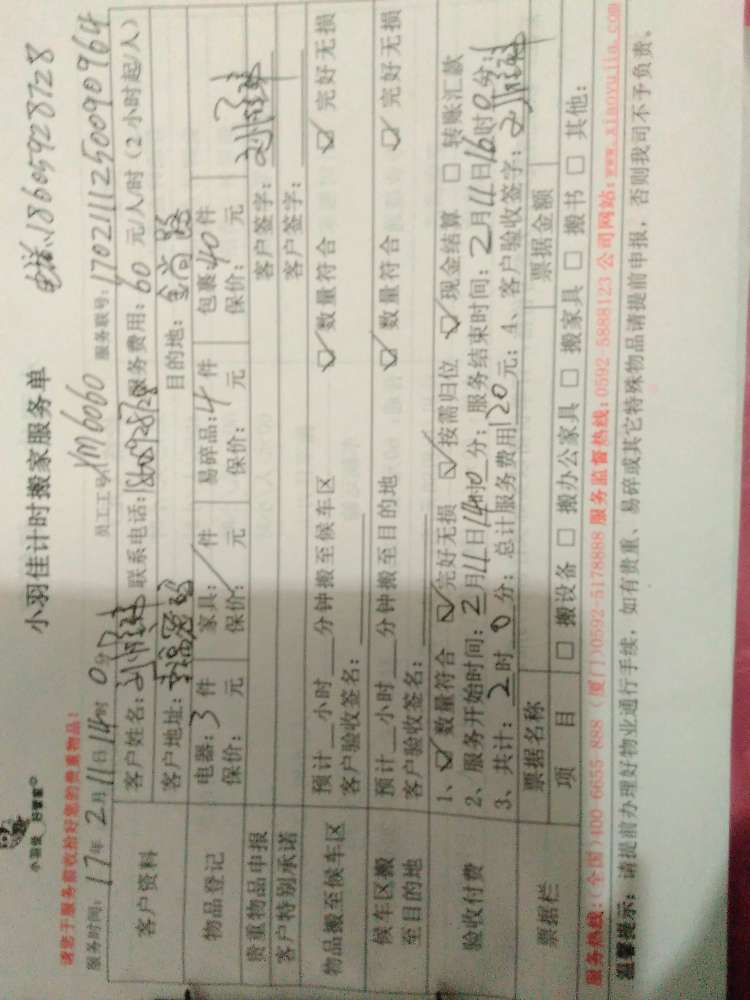 小羽佳 好管家
小羽佳计时搬家服务单
电话:18605928728
请您于服务前收拾好您的贵重物品!
服务时间: 17年 2月 11日 14时 0分 员工工号: YM6060 服务联号: 170211125090964
客户资料 客户姓名: 联系电话:18605928728 服务费用: 60 元/人/时 (2小时起/人)
客户地址: 目的地: 金尚路
物品登记 电器: 3 件 家具: / 件 易碎品: 4 件 包裹: 40 件
保价: 元 保价: 元 保价: 元 保价: 元
贵重物品申报 客户签字:
客户特别承诺 客户签字:
物品搬至候车区 预计__小时__分钟搬至候车区 ☑ 数量符合 ☑ 完好无损
客户验收签名:
候车区搬至目的地 预计__小时__分钟搬至目的地 ☑ 数量符合 ☑ 完好无损
客户验收签名:
验收付费 1、☑ 数量符合 ☑ 完好无损 ☑ 按需归位 ☑ 现金结算 □ 转账汇款
2、服务开始时间: 2月11日14时0分; 服务结束时间: 2月11日16时0分;
3、共计: 2时0分; 总计服务费用120元; 4、客户验收签字:
票据栏 票据名称 票据金额
项目 □ 搬设备 □ 搬办公家具 □ 搬家具 □ 搬书 □ 其他:
服务热线: (全国)400 6655 888 (厦门)0592-5178888 服务监督热线:0592 5888123 公司网站:www.xiaoyujia.com
温馨提示: 请提前办理好物业通行手续, 如有贵重、易碎或其它特殊物品请提前申报, 否则我司不予负责。